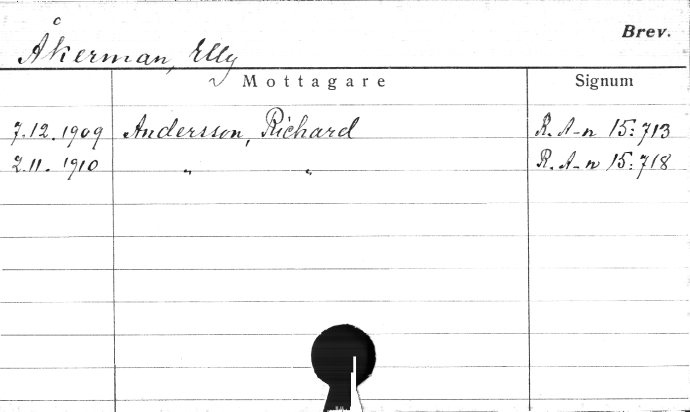 Brev.
Åkerman, Elly
Mottagare Signum
7.12.1909 Andersson, Richard R. A-n 15:713
2.11.1910 " " R. A-n 15:718